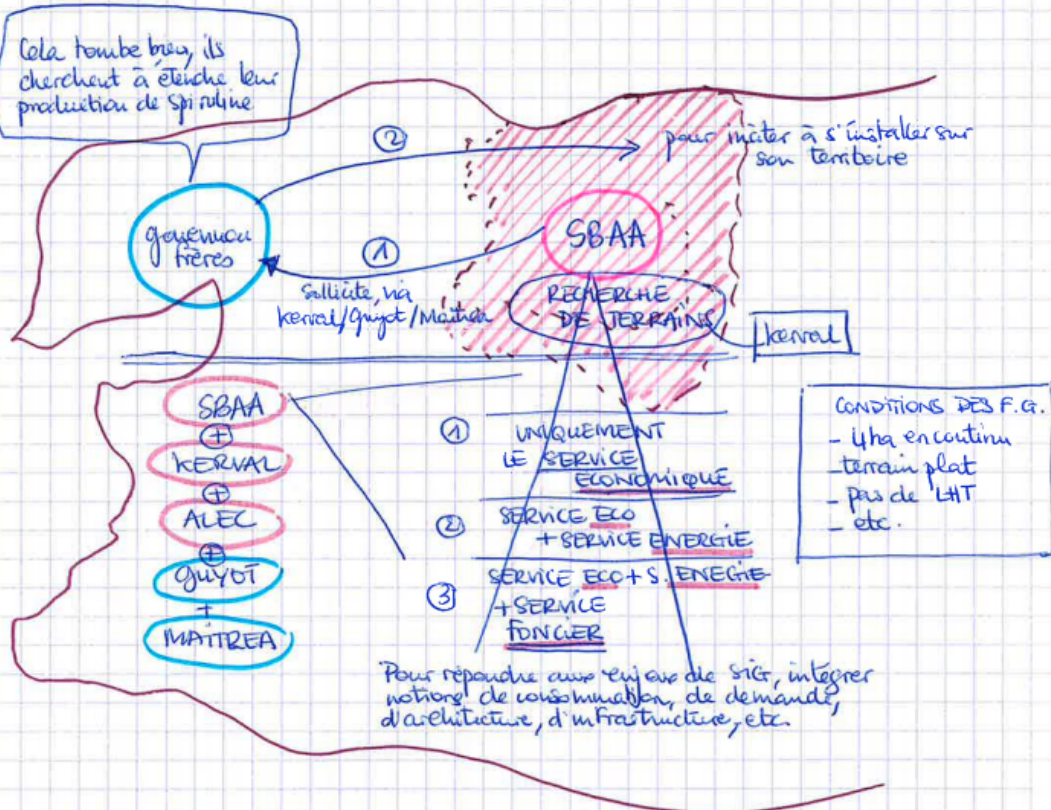 Cela tombe bien, ils
cherchent à étendre leur
production de spiruline
②
pour inciter à s'installer sur
son territoire
gouennou
frères
①
SBAA
Sollicite, via
kerval/Guyot/Maîtrea
RECHERCHE
DE TERRAINS
kerval
SBAA
+
KERVAL
+
ALEC
+
GUYOT
+
MAÎTREA
① UNIQUEMENT
LE SERVICE
ECONOMIQUE
② SERVICE ECO
+ SERVICE ENERGIE
③ SERVICE ECO + S. ENEGIE
+ SERVICE
FONCIER
CONDITIONS DES F.G.
- 4ha en continu
- terrain plat
- pas de LHT
- etc.
Pour répondre aux enjeux de SIG, intégrer
notions de consommation, de demande,
d'architecture, d'infrastructure, etc.